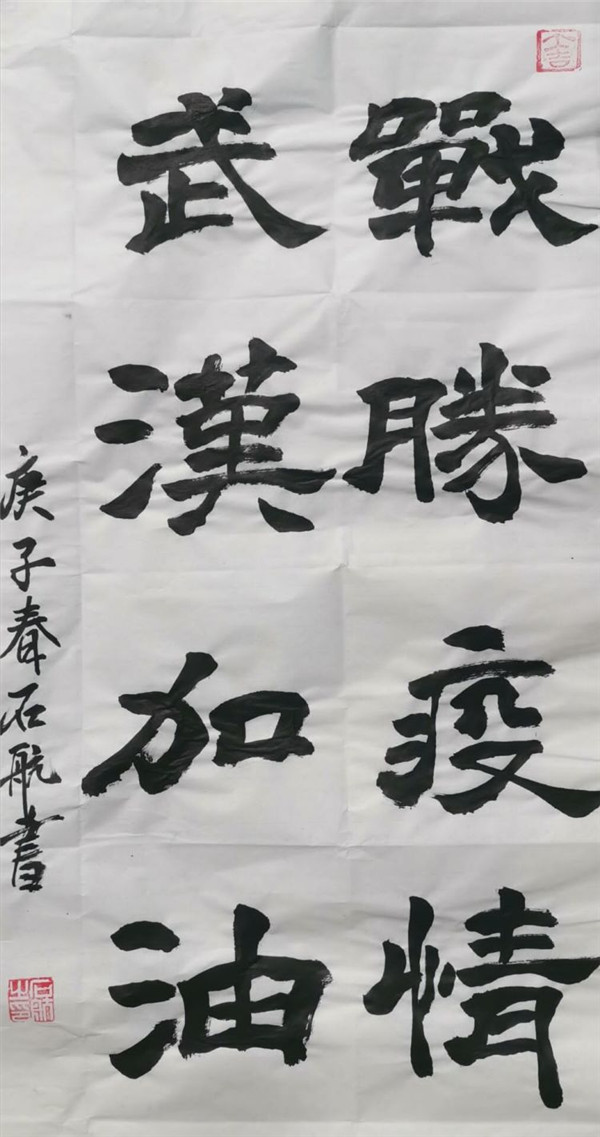 戰勝疫情
武漢加油
庚子春石航書